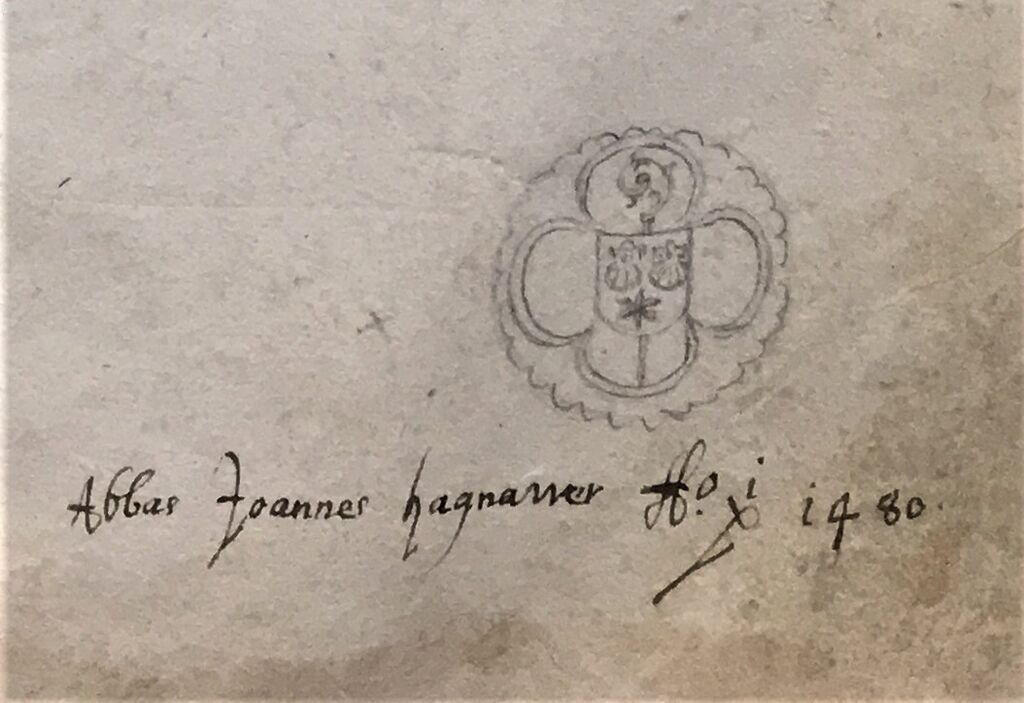 Abbas Joannes hagnawer Aº. xi 1480.